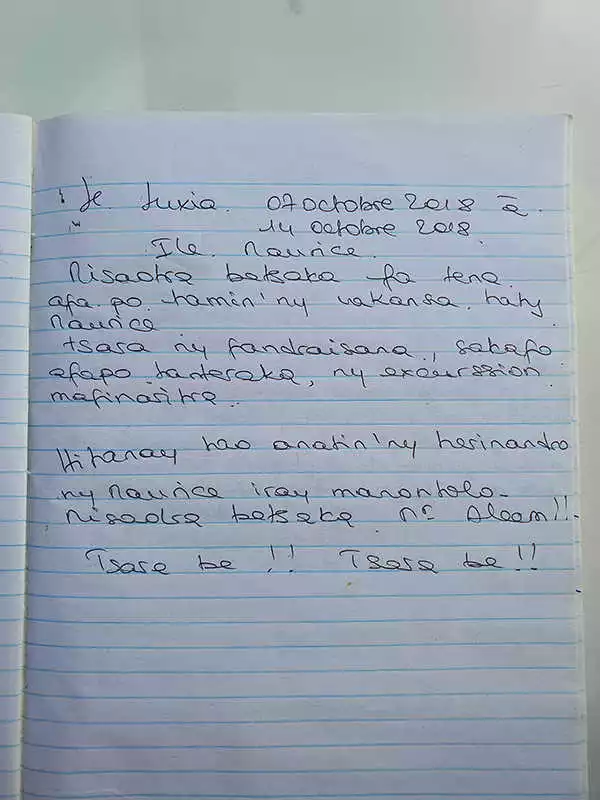 Je Luxia. 07 octobre 2018 à
14 octobre 2018.
Ile Maurice.
Misaotra betsaka fa tena
afa po tamin'ny vakansa taty
Maurice
tsara ny fandraisana, sakafo
afapo tanteraka, ny excurssion
mafinaritra.
Hitanay tao anatin'ny herinandro
ny Maurice iray manontolo.
Misaotra betsaka Mr Aleam!!.
Tsara be !! Tsara be!!